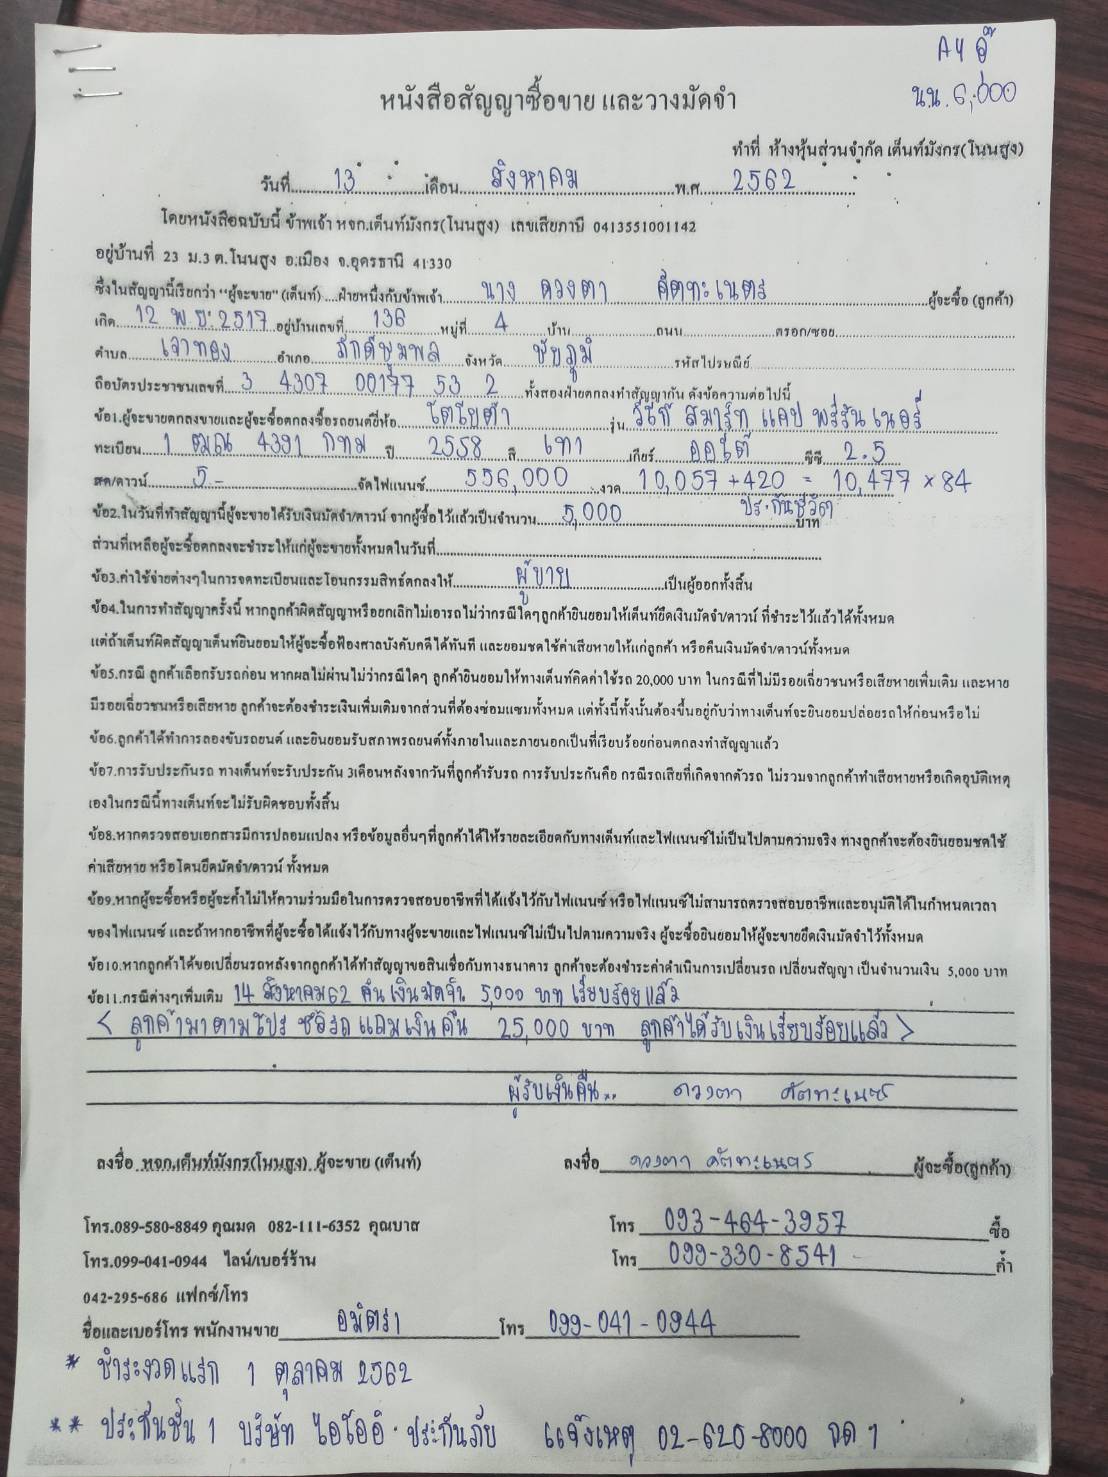 A4 อู๊
น.น. 6,000
หนังสือสัญญาซื้อขาย และวางมัดจำ
ทำที่ ห้างหุ้นส่วนจำกัด เต็นท์มังกร(โนนสูง)
วันที่ 13 เดือน สิงหาคม พ.ศ. 2562
โดยหนังสือฉบับนี้ ข้าพเจ้า หจก.เต็นท์มังกร(โนนสูง) เลขเสียภาษี 0413551001142
อยู่บ้านที่ 23 ม.3 ต.โนนสูง อ.เมือง จ.อุดรธานี 41330
ซึ่งในสัญญานี้เรียกว่า "ผู้จะขาย" (เต็นท์) ....ฝ่ายหนึ่งกับข้าพเจ้า นาง ดวงตา คัตทะเนตร ผู้จะซื้อ (ลูกค้า)
เกิด 12 พ.ย. 2517 อยู่บ้านเลขที่ 136 หมู่ที่ 4 บ้าน ถนน ตรอก/ซอย
ตำบล เจาทอง อำเภอ ภักดีชุมพล จังหวัด ชัยภูมิ รหัสไปรษณีย์
ถือบัตรประชาชนเลขที่ 3 4307 00177 53 2 ทั้งสองฝ่ายตกลงทำสัญญากัน ดังข้อความต่อไปนี้
ข้อ1.ผู้จะขายตกลงขายและผู้จะซื้อตกลงซื้อรถยนต์ยี่ห้อ โตโยต้า รุ่น วีโก้ สมาร์ท แคป พรีรันเนอร์
ทะเบียน 1 ฒณ 4391 กทม ปี 2558 สี เทา เกียร์ ออโต้ ซีซี 2.5
สด/ดาวน์ 5.- จัดไฟแนนซ์ 556,000 งวด 10,057 +420 = 10,477 × 84
ประกันชีวิต
ข้อ2.ในวันที่ทำสัญญานี้ผู้จะขายได้รับเงินมัดจำ/ดาวน์ จากผู้ซื้อไว้แล้วเป็นจำนวน 5,000 บาท
ส่วนที่เหลือผู้จะซื้อตกลงจะชำระให้แก่ผู้จะขายทั้งหมดในวันที่
ข้อ3.ค่าใช้จ่ายต่างๆในการจดทะเบียนและโอนกรรมสิทธ์ตกลงให้ ผู้ขาย เป็นผู้ออกทั้งสิ้น
ข้อ4.ในการทำสัญญาครั้งนี้ หากลูกค้าผิดสัญญาหรือยกเลิกไม่เอารถไม่ว่ากรณีใดๆลูกค้ายินยอมให้เต็นท์ยึดเงินมัดจำ/ดาวน์ ที่ชำระไว้แล้วได้ทั้งหมด
แต่ถ้าเต็นท์ผิดสัญญาเต็นท์ยินยอมให้ผู้จะซื้อฟ้องศาลบังคับคดีได้ทันที และยอมชดใช้ค่าเสียหายให้แก่ลูกค้า หรือคืนเงินมัดจำ/ดาวน์ทั้งหมด
ข้อ5.กรณี ลูกค้าเลือกรับรถก่อน หากผลไม่ผ่านไม่ว่ากรณีใดๆ ลูกค้ายินยอมให้ทางเต็นท์คิดค่าใช้รถ 20,000 บาท ในกรณีที่ไม่มีรอยเฉี่ยวชนหรือเสียหายเพิ่มเติม และหาย
มีรอยเฉี่ยวชนหรือเสียหาย ลูกค้าจะต้องชำระเงินเพิ่มเติมจากส่วนที่ต้องซ่อมแซมทั้งหมด แต่ทั้งนี้ทั้งนั้นต้องขึ้นอยู่กับว่าทางเต็นท์จะยินยอมปล่อยรถให้ก่อนหรือไม่
ข้อ6.ลูกค้าได้ทำการลองขับรถยนต์ และยินยอมรับสภาพรถยนต์ทั้งภายในและภายนอกเป็นที่เรียบร้อยก่อนตกลงทำสัญญาแล้ว
ข้อ7.การรับประกันรถ ทางเต็นท์จะรับประกัน 3เดือนหลังจากวันที่ลูกค้ารับรถ การรับประกันคือ กรณีรถเสียที่เกิดจากตัวรถ ไม่รวมจากลูกค้าทำเสียหายหรือเกิดอุบัติเหตุ
เองในกรณีนี้ทางเต็นท์จะไม่รับผิดชอบทั้งสิ้น
ข้อ8.หากตรวจสอบเอกสารมีการปลอมแปลง หรือข้อมูลอื่นๆที่ลูกค้าได้ให้รายละเอียดกับทางเต็นท์และไฟแนนซ์ไม่เป็นไปตามความจริง ทางลูกค้าจะต้องยินยอมชดใช้
ค่าเสียหาย หรือโดนยึดมัดจำ/ดาวน์ ทั้งหมด
ข้อ9.หากผู้จะซื้อหรือผู้จะค้ำไม่ให้ความร่วมมือในการตรวจสอบอาชีพที่ได้แจ้งไว้กับไฟแนนซ์ หรือไฟแนนซ์ไม่สามารถตรวจสอบอาชีพและอนุมัติได้ในกำหนดเวลา
ของไฟแนนซ์ และถ้าหากอาชีพที่ผู้จะซื้อได้แจ้งไว้กับทางผู้จะขายและไฟแนนซ์ไม่เป็นไปตามความจริง ผู้จะซื้อยินยอมให้ผู้จะขายยึดเงินมัดจำไว้ทั้งหมด
ข้อ10.หากลูกค้าได้ขอเปลี่ยนรถหลังจากลูกค้าได้ทำสัญญาขอสินเชื่อกับทางธนาคาร ลูกค้าจะต้องชำระค่าดำเนินการเปลี่ยนรถ เปลี่ยนสัญญา เป็นจำนวนเงิน 5,000 บาท
ข้อ11.กรณีต่างๆเพิ่มเติม 14 สิงหาคม62 คืนเงินมัดจำ 5,000 บาท เรียบร้อยแล้ว
< ลูกค้ามาตามโปร ซื้อรถแถมเงินคืน 25,000 บาท ลูกค้าได้รับเงินเรียบร้อยแล้ว >
ผู้รับเงินคืน.. ดวงตา คัตทะเนตร
ลงชื่อ หจก.เต็นท์มังกร(โนนสูง) ผู้จะขาย (เต็นท์) ลงชื่อ ดวงตา คัตทะเนตร ผู้จะซื้อ(ลูกค้า)
โทร.089-580-8849 คุณมด 082-111-6352 คุณบาส โทร 093-464-3957 ซื้อ
โทร.099-041-0944 ไลน์/เบอร์ร้าน โทร 099-330-8541 ค้ำ
042-295-686 แฟกซ์/โทร
ชื่อและเบอร์โทร พนักงานขาย อมิตรา โทร 099-041-0944
* ชำระงวดแรก 1 ตุลาคม 2562
** ประกันชั้น 1 บริษัท ไอโออิ ประกันภัย แจ้งเหตุ 02-620-8000 กด 1